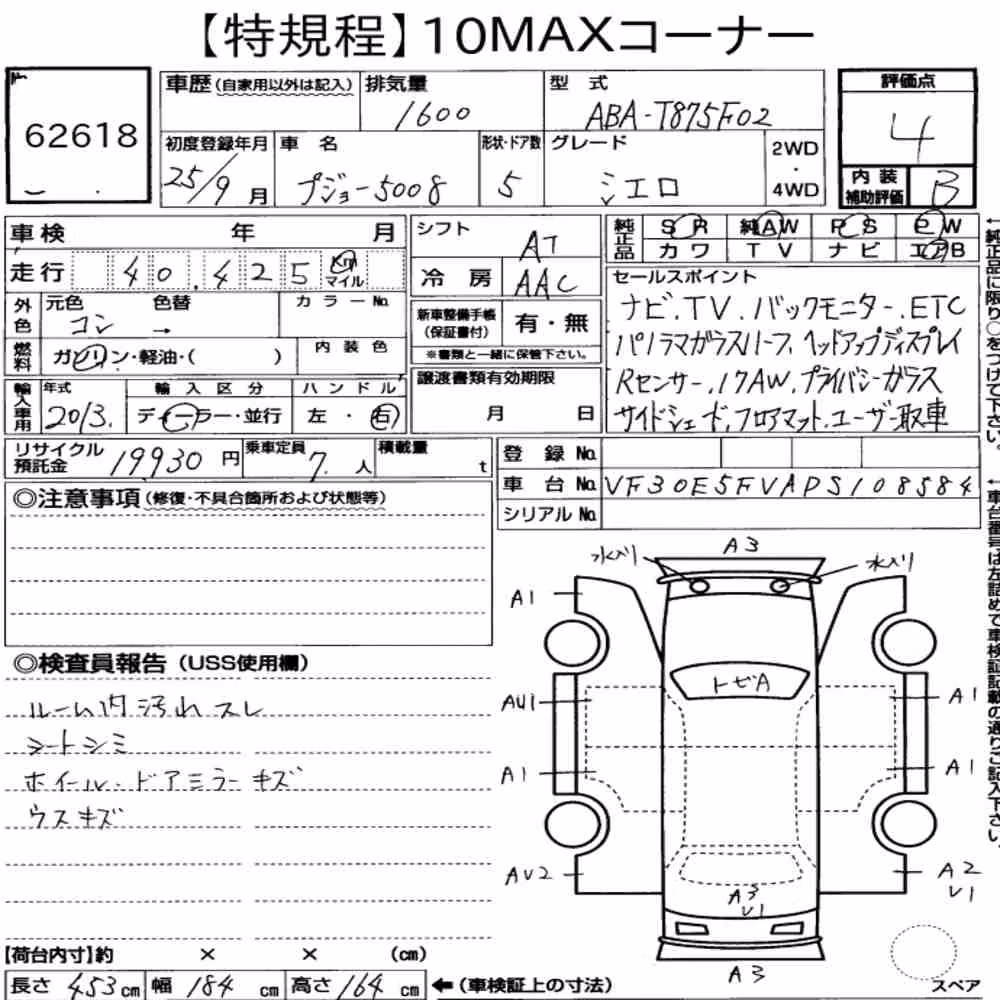 【特規程】10MAXコーナー
62618
車歴(自家用以外は記入) 排気量 1600 型式 ABA-T875F02 評価点 4
初度登録年月 25/9月 車名 プジョー5008 形状・ドア数 5 グレード シエロ 2WD・4WD 内装補助評価 B
車検 年 月 シフト AT 純正品 SR 純AW PS PW
走行 40,425 Km マイル 冷房 AAC カワ TV ナビ エアB
外色 元色 コン 色替 → カラーNo. 新車整備手帳(保証書付) 有・無
※書類と一緒に保管下さい。
燃料 ガソリン・軽油・( ) 内装色 譲渡書類有効期限 月 日
輸入車用 年式 2013. 輸入区分 ディーラー・並行 ハンドル 左・右
セールスポイント
ナビ.TV.バックモニター.ETC
パノラマガラスルーフ.ヘッドアップディスプレイ
Rセンサー.17AW.プライバシーガラス
サイドシェード.フロアマット.ユーザー取車
リサイクル預託金 19930円 乗車定員 7.人 積載量 t
登録No.
車台No. VF30E5FVADS108584
シリアルNo.
◎注意事項(修復・不具合箇所および状態等)
◎検査員報告(USS使用欄)
ルーム内汚れスレ
シートシミ
ホイール.ドアミラーキズ
ウスキズ
A3
水入り 水入り
A1
トビA
AU1 A1
A1 A1
AU2 A2 V1
A3 V1
A3
スペア
【荷台内寸】約 × × (cm)
長さ 453cm 幅 184cm 高さ 164cm ←(車検証上の寸法)
←純正品に限り○をつけて下さい。
←車台番号は左詰めで車検証記載の通りご記入下さい。